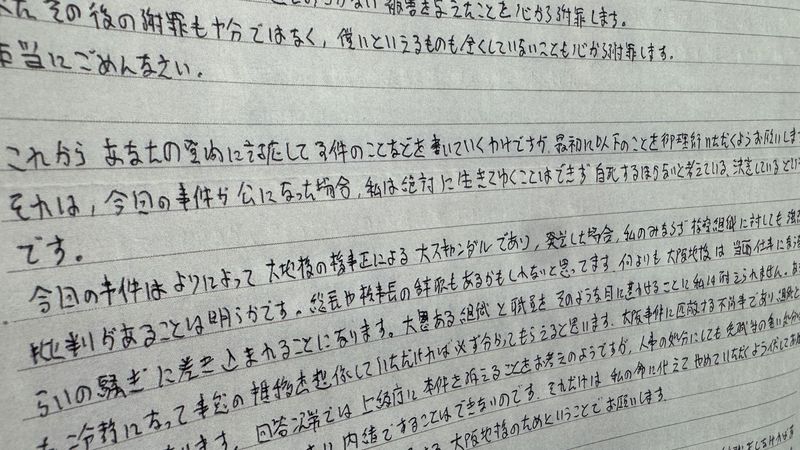 その後の謝罪も十分ではなく、償いといえるものも全くしていないことも心から謝罪します。
本当にごめんなさい。
これから あなたの意向に対応して事件のことなどを書いていくわけですが、最初に以下のことを御理解いただくようお願いします
それは、今回の事件が公になった場合、私は絶対に生きてゆくことはできず 自死するほかないと考えている、決意しているとい
です。
今回の事件はよりによって 大地検の検事正による大スキャンダルであり、発覚した場合、私のみならず検察組織に対しても強
批判があることは明らかです。総長や検事長の辞職もあるかもしれないと思ってます。何よりも大阪地検は 当面仕事に
らいの騒ぎに巻き込まれることになります。大恩ある組織と職員を そのような目に遭わせることに私は耐えられません。
冷静になって 事態の推移を想像していただければ必ず分かってもらえると思います。大阪事件に匹敵する不祥事であり、
回答次第では上級庁に本件を訴えることをお考えのようですが、人事の処分にしても
内緒ですることはできないのです。それだけは 私の命に代えて やめていただくよう伏して
大阪地検のためということでお願いします。